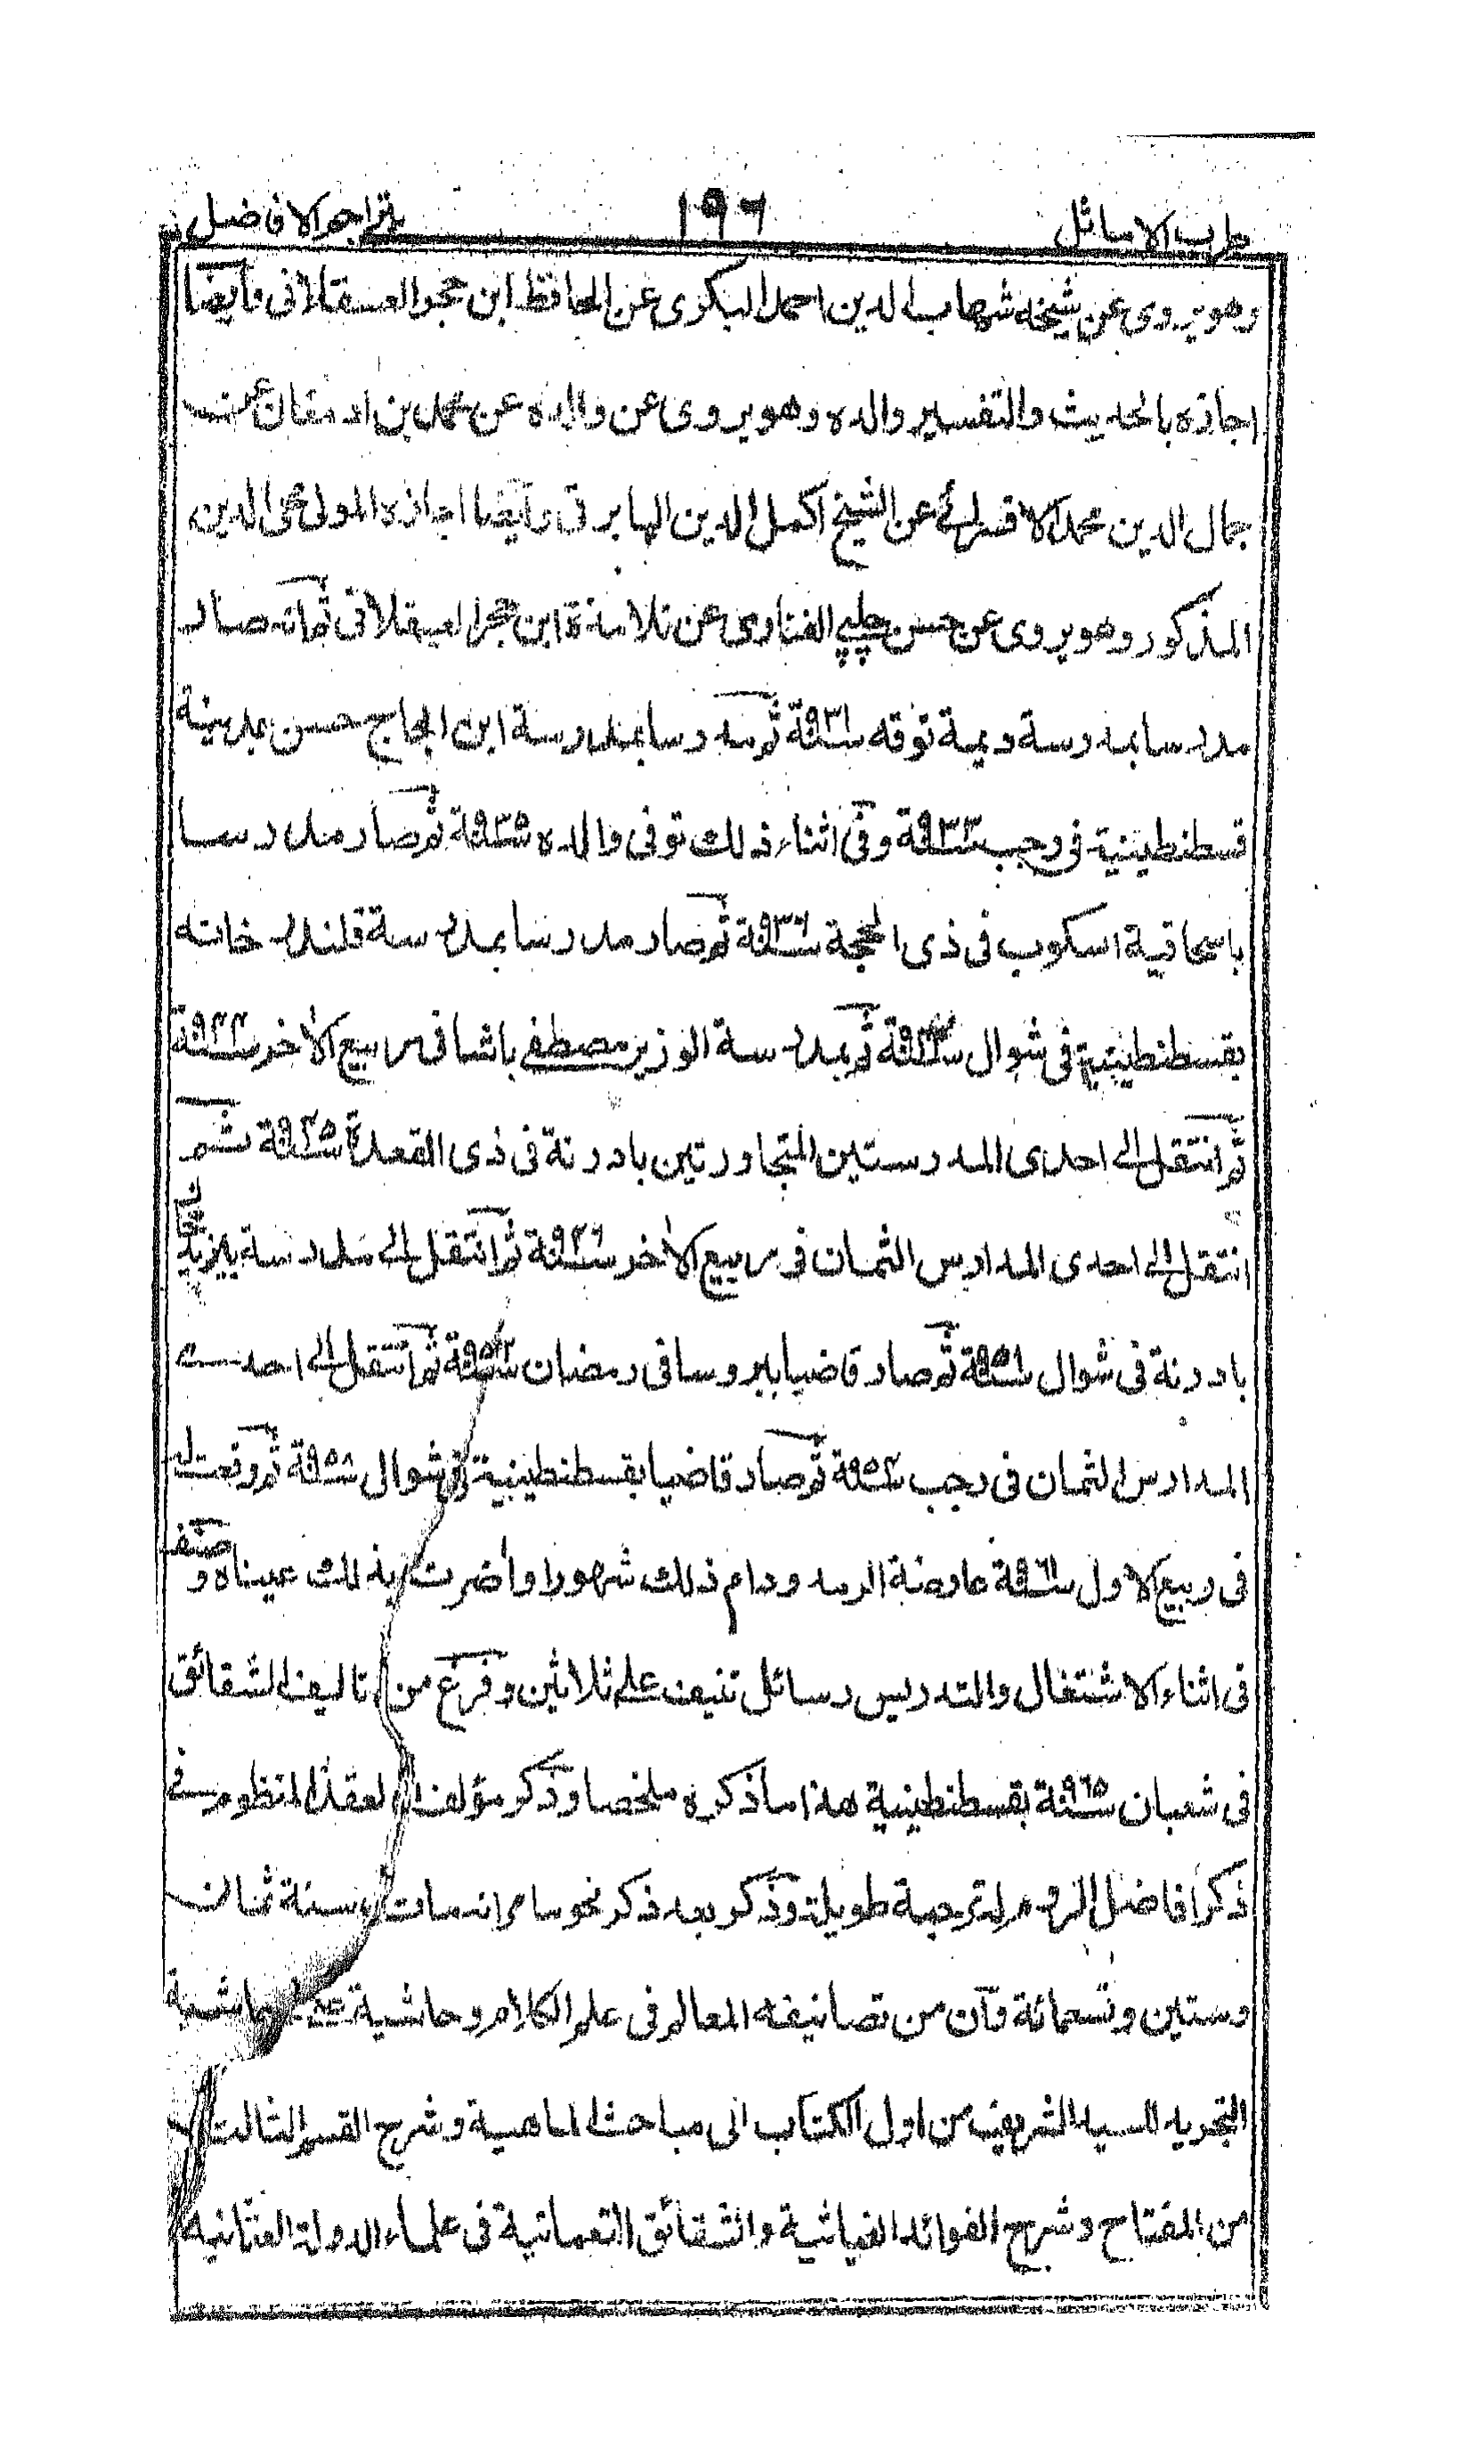 طرب الاماثل ١٩٦ بتراجم الافاضل
وهو يروى عن شيخه شهاب الدين احمد البكرى عن الحافظ ابن حجر العسقلانى وايضا
اجازه بالحديث والتفسير والده وهو يروى عن والده عن محمد بن ادمغان عن
جمال الدين محمد الاقسرائى عن الشيخ اكمل الدين البابرتى وايضا اجازه المولى محى الدين
المذكور وهو يروى عن حسن چلپى الفنارى عن تلامذة ابن حجر العسقلانى ثم انه صار
مدرسا بمدرسة ديمة توقه سنة ٩٣١ ثم مدرسا بمدرسة ابن الحاج حسن بمدينة
قسطنطينية فى رجب سنة ٩٣٣ وفى اثناء ذلك توفى والده سنة ٩٣٥ ثم صار مدرسا
باسحاقية اسكوب فى ذى الحجة سنة ٩٣٦ ثم صار مدرسا بمدرسة قلندر خانه
بقسطنطينية فى شوال سنة ثم بمدرسة الوزير مصطفى باشا فى ربيع الآخر سنة
ثم انتقل الى احدى المدرستين المتجاورتين بادرنة فى ذى القعدة سنة ثم
انتقل الى احدى المدارس الثمان فى ربيع الآخر سنة ثم انتقل الى مدرسة بايزيد خان
بادرنة فى شوال سنة ٩٥١ ثم صار قاضيا ببروسا فى رمضان سنة ٩٥٢ ثم انتقل الى احدى
المدارس الثمان فى رجب سنة ثم صار قاضيا بقسطنطينية فى شوال سنة ٩٥٨ ثم وقعت له
فى ربيع الاول سنة ٩٦١ عارضة الرمد ودام ذلك شهورا واضرت بذلك عيناه وصنف
فى اثناء الاشتغال والتدريس رسائل تنيف على ثلاثين وفرغ من تاليف الشقائق
فى شعبان سنة ٩٦٥ بقسطنطينية هذا ما ذكره ملخصا وذكر مؤلف العقد المنظوم فى
ذكر افاضل الروم له ترجمة طويلة وذكر بعد ذكر نحو ما مر انه مات سنة ثمان
وستين وتسعمائة وان من تصانيفه المعالم فى علم الكلام وحاشية على حاشية
التجريد للسيد الشريف من اول الكتاب الى مباحث الماهية وشرح القسم الثالث
من المفتاح وشرح الفوائد الغياثية والشقائق النعمانية فى علماء الدولة العثمانية